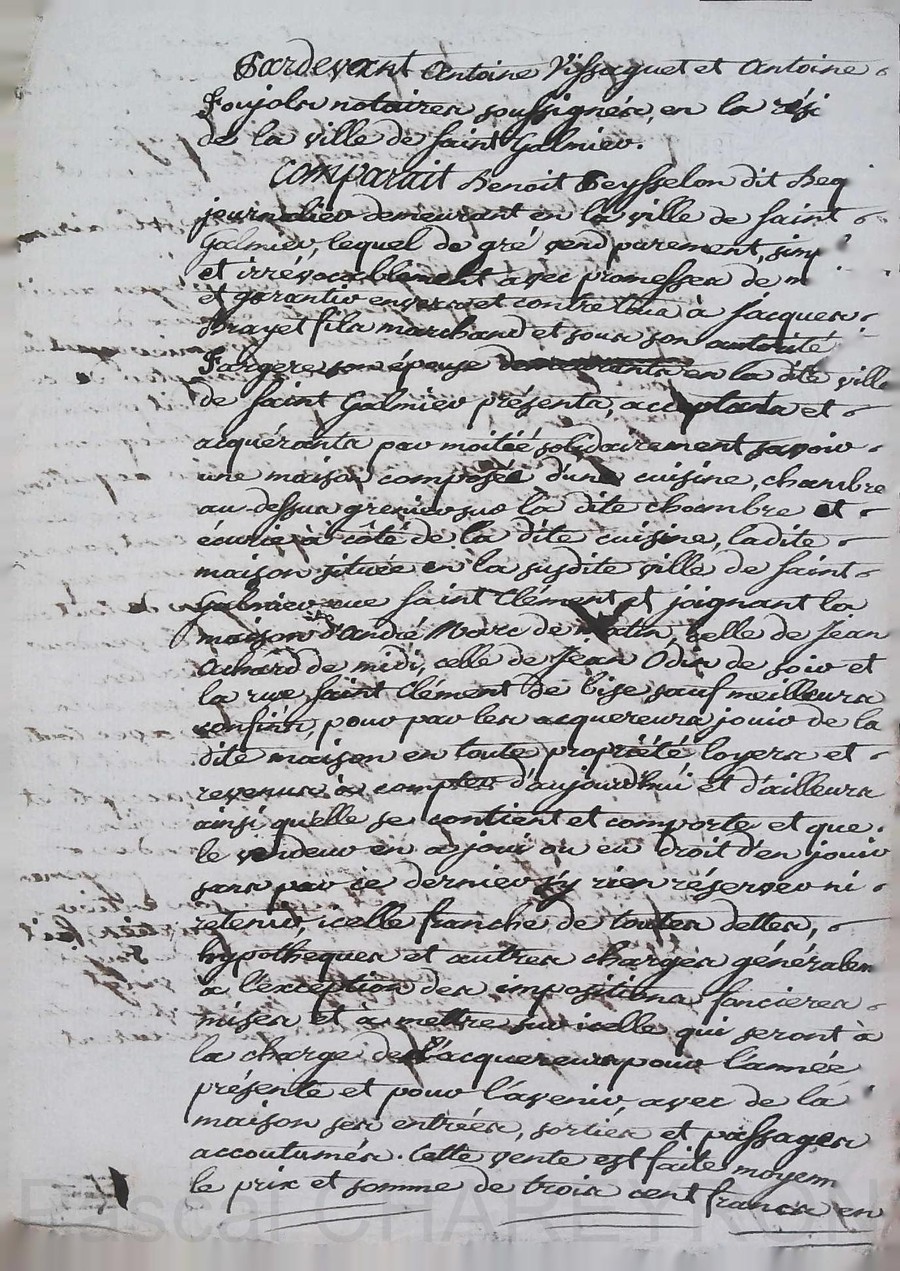 Pardevant Antoine Vissaguet et Antoine
Foujols notaires soussignés, en la rési
de la ville de Saint Galmier.
Comparait Benoit Peysselon dit Beq
journalier demeurant en la ville de Saint
Galmier, lequel de gré vend purement, sim
et irrévocablement avec promesses de m
et garantir envers et contre tous à Jacques
Brayet fils marchand et sous son autorité
Fargere son épouse demeurants en la dite ville
de Saint Galmier présents, acceptants et
acquérants par moitié solidairement savoir
une maison composée d'une cuisine, chambre
au-dessus grenier sur la dite chambre et
écurie à côté de la dite cuisine, ladite
maison située en la susdite ville de Saint
Galmier rue Saint Clément et joignant la
maison d'André Marc de matin, celle de Jean
Achard de midi, celle de Jean Odin de soir et
la rue Saint Clément de bise sauf meilleurs
confins, pour par les acquereurs jouir de la
dite maison en toute propriété loyers et
revenus à compter d'aujourdhui et d'ailleurs
ainsi qu'elle se contient et comporte et que
le vendeur en a joui ou eu droit d'en jouir
sans par ce dernier s'y rien réserver ni
retenir, icelle franche de toutes dettes,
hypotheques et autres charges généralem
à l'exception des impositions foncieres
mises et à mettre sur icelle qui seront à
la charge des acquereurs pour l'année
présente et pour l'avenir, avec de la
maison ses entrées, sorties et passages
accoutumés. Cette vente est faite moyenn
le prix et somme de trois cent francs en
Pascal CHAREYRON